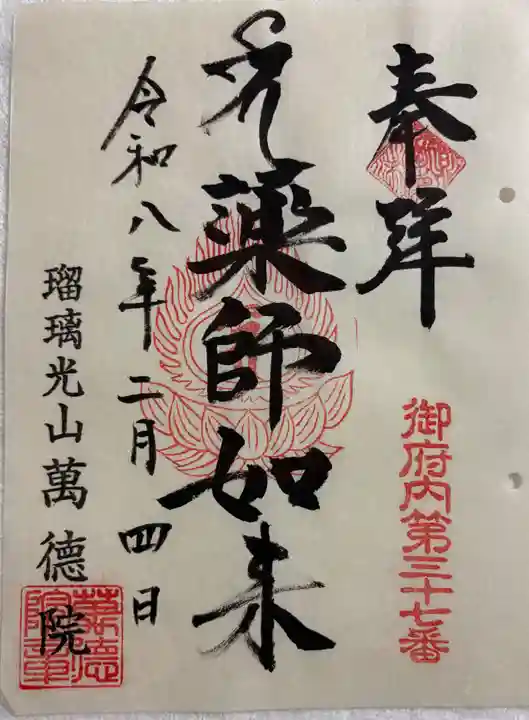 奉拝
御府内第三十七番
薬師如来
令和八年二月四日
瑠璃光山萬德院
萬德院章